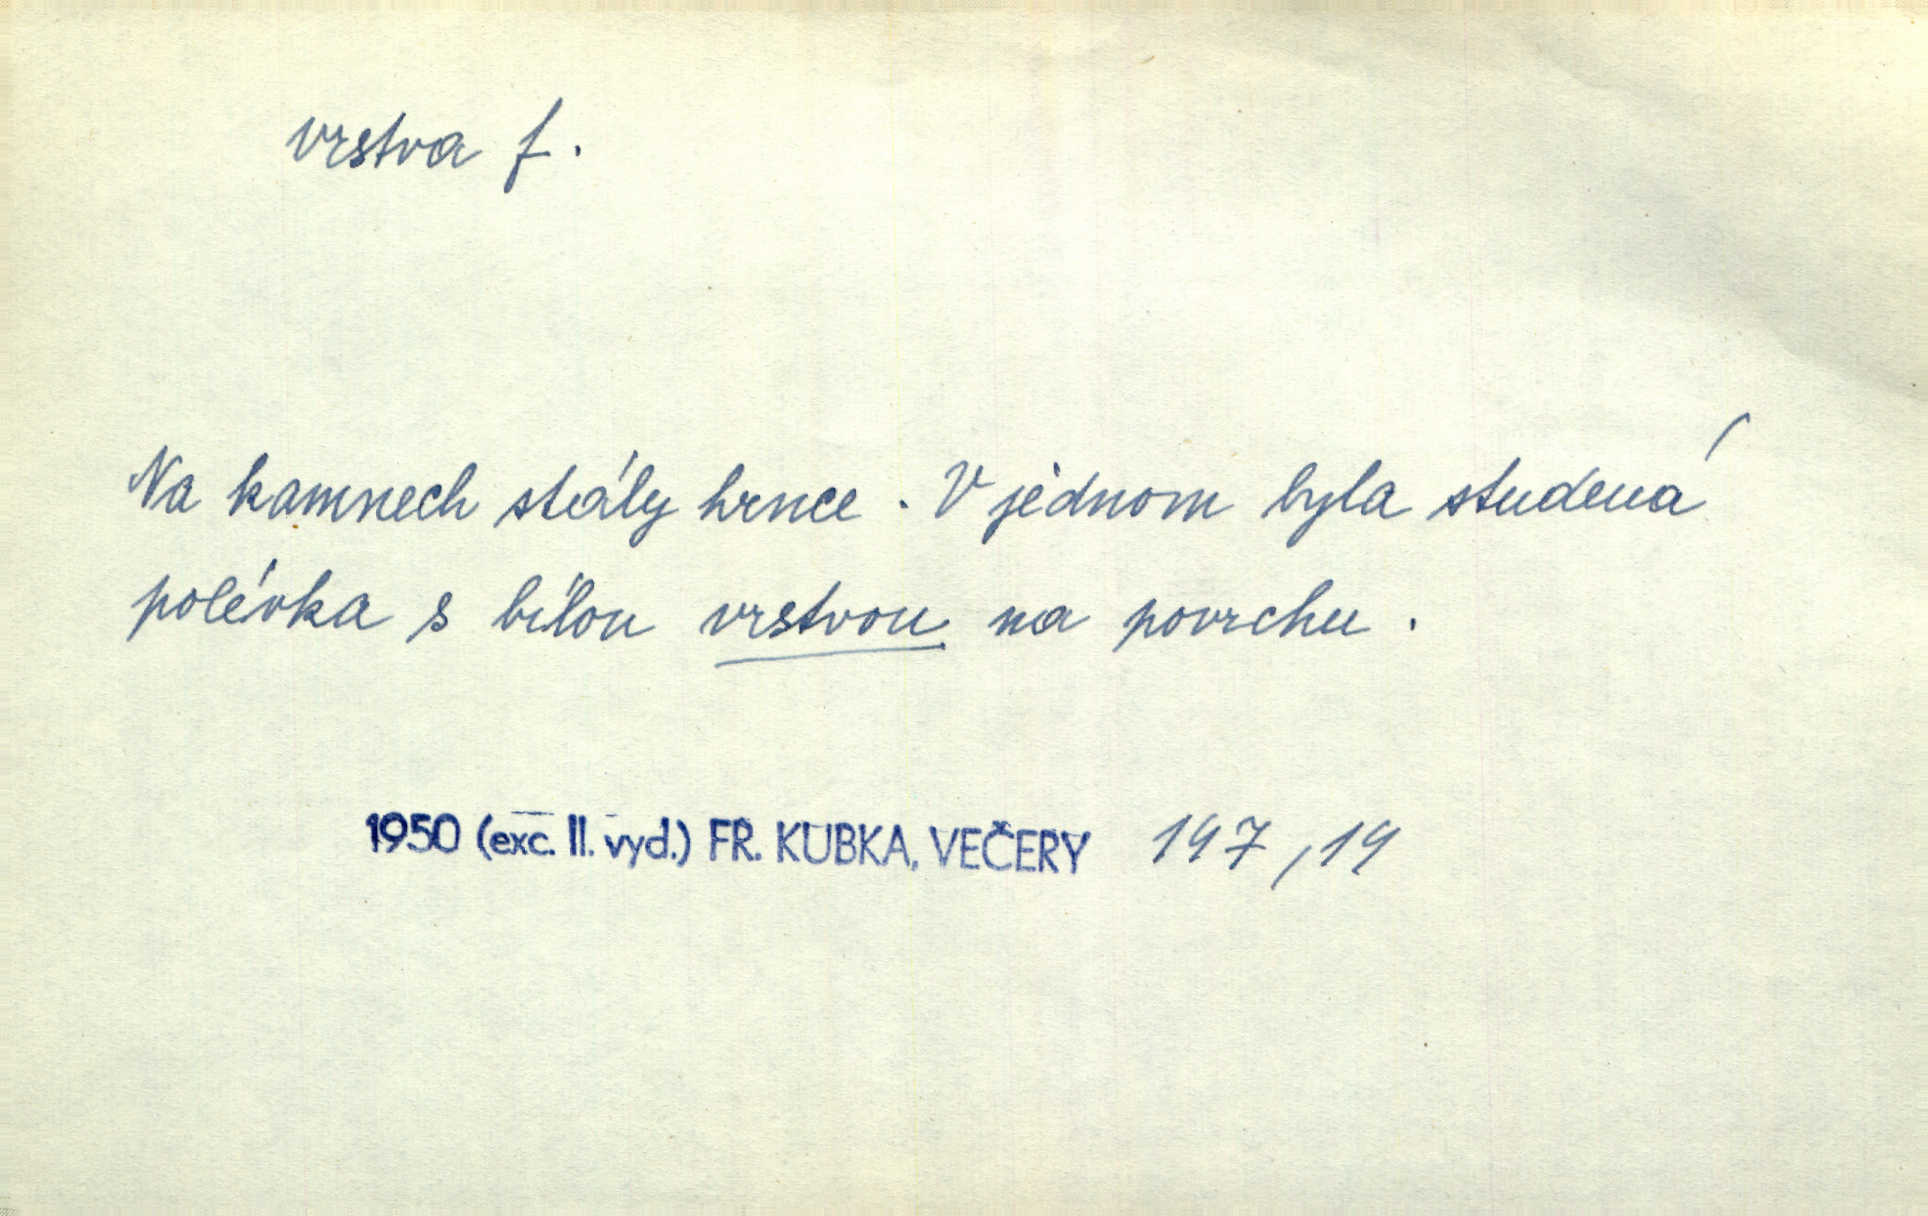 vrstva f.
Na kamnech stály hrnce. V jednom byla studená
polévka s bílou vrstvou na povrchu.
1950 (exc. II. vyd.) FR. KUBKA, VEČERY 197, 19